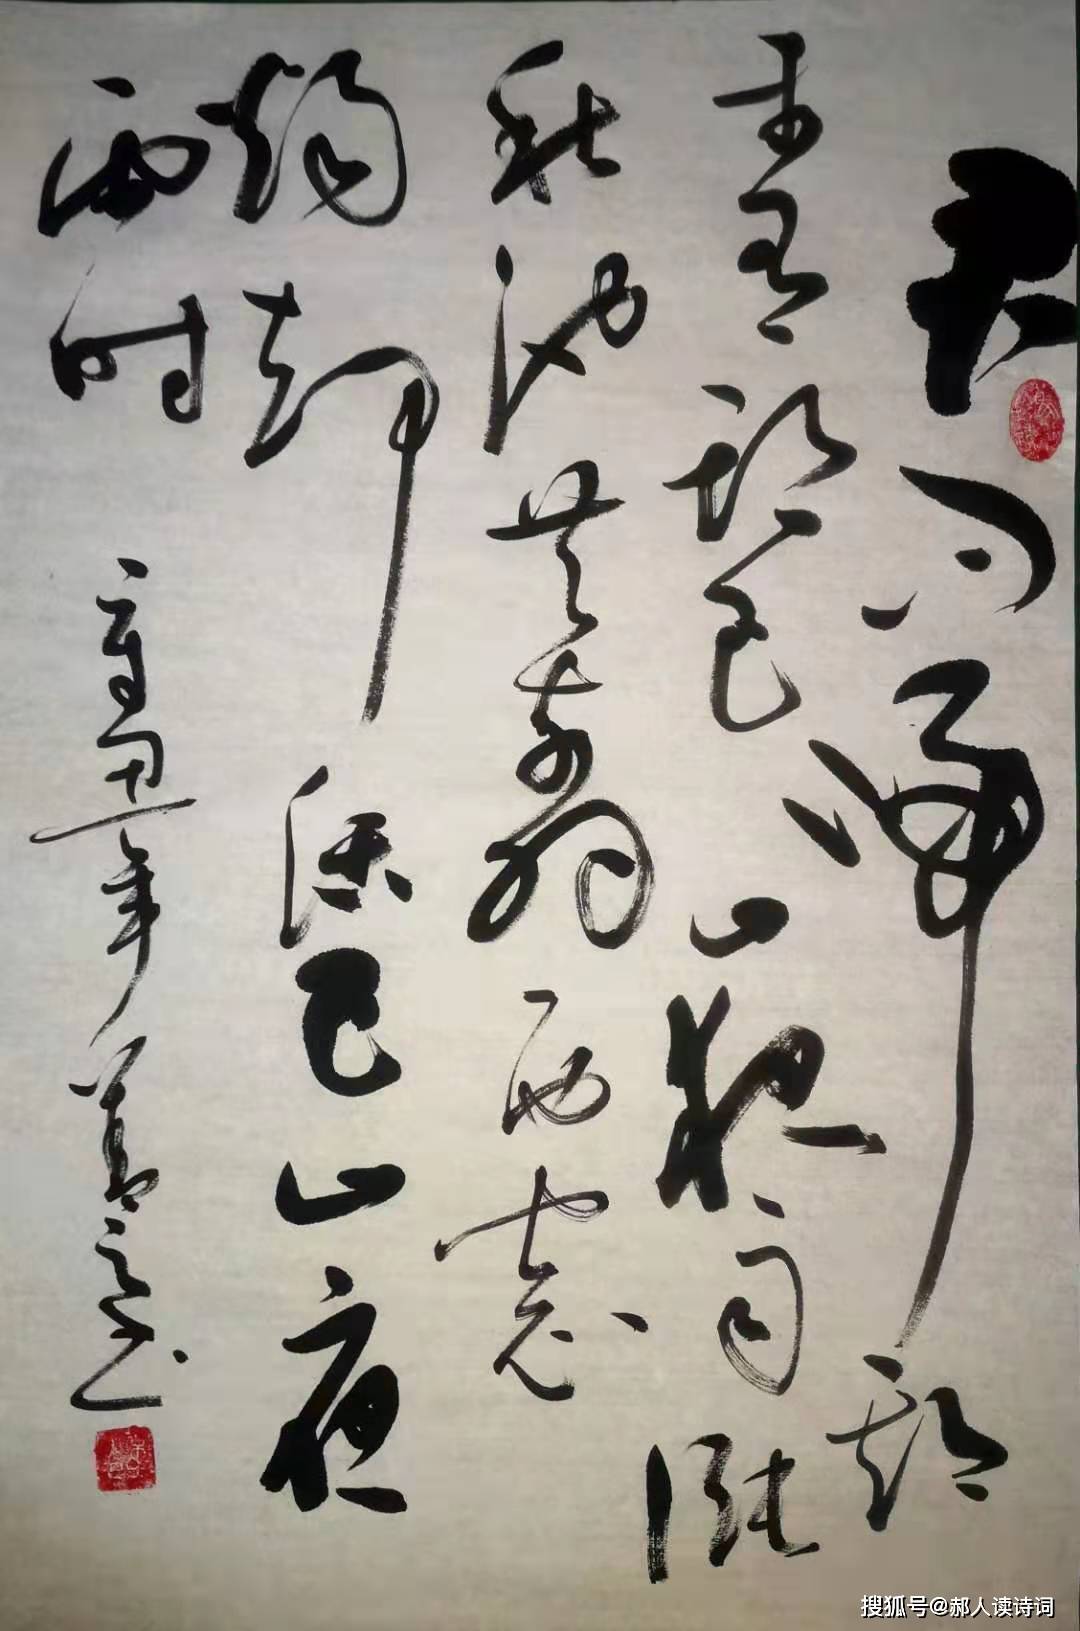 君问归期
未有期巴山夜雨涨
秋池共剪西窗
烛却话巴山夜
雨时
辛丑年
搜狐号@郝人读诗词